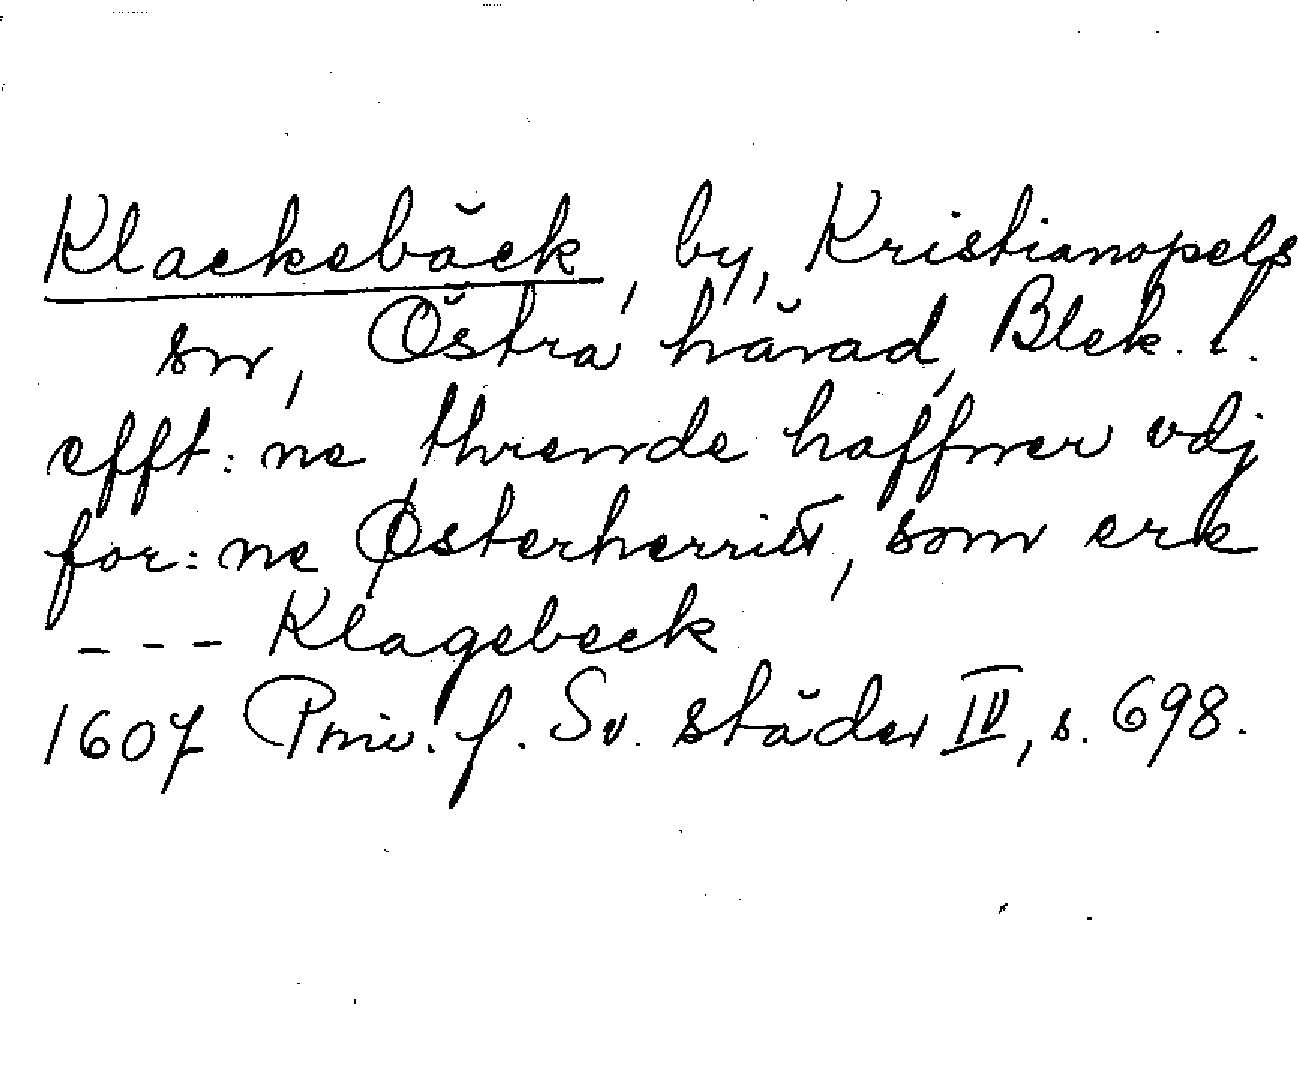 Klackebäck, by, Kristianopels
sn, Östra härad, Blek. l.
efft: ne thrende haffner vdj
for: ne Østerherritt, som ere
- - - Klagebeck
1607 Priv. f. Sv. städer IV, s. 698.